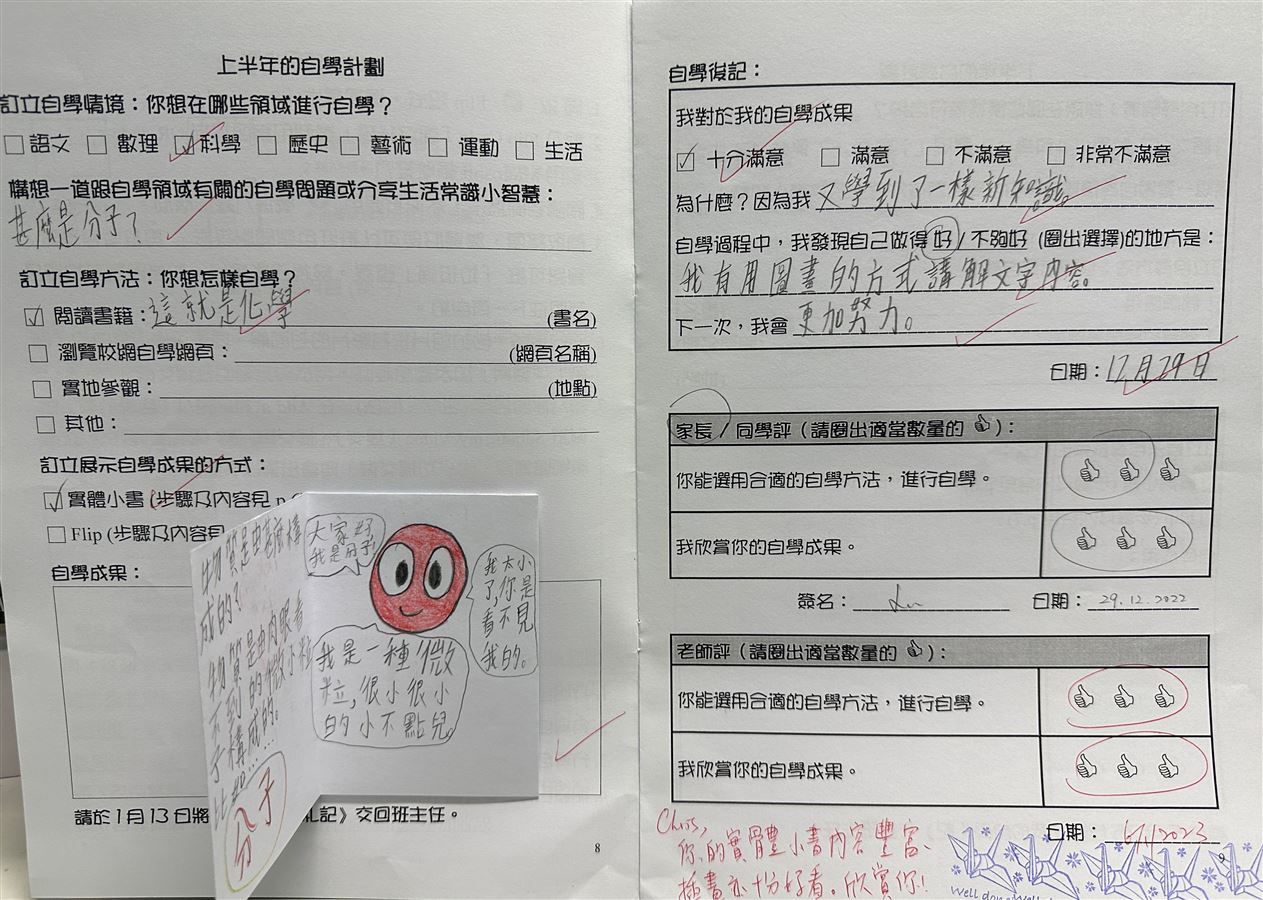 上半年的自學計劃
訂立自學情境：你想在哪些領域進行自學？
☐語文 ☐ 數理 ☑科學 ☐ 歷史 ☐ 藝術 ☐ 運動 ☐ 生活
構想一道跟自學領域有關的自學問題或分享生活常識小智慧：
甚麼是分子？
訂立自學方法：你想怎樣自學？
☑ 閱讀書籍：這就是化學 (書名)
☐ 瀏覽校網自學網頁： (網頁名稱)
☐ 實地參觀： (地點)
☐ 其他：
訂立展示自學成果的方式：
☑ 實體小書 (步驟及內容見 p.
☐ Flip (步驟及內容見
自學成果：
物質是由甚麼構
成的？
物質是由肉眼看
不到的微小粒
子構成的。
比如……
分子
大家好
我是分子！
我太小
了，你是
看不見
我的。
我是一種微
粒，很小很小
的小不點兒。
請於1月13日將
札記》交回班主任。
8
自學後記：
我對於我的自學成果
☑ 十分滿意 ☐ 滿意 ☐ 不滿意 ☐ 非常不滿意
為什麼？因為我 又學到了一樣新知識。
自學過程中，我發現自己做得 好 / 不夠好 (圈出選擇)的地方是：
我有用圖畫的方式講解文字內容。
下一次，我會 更加努力。
日期：12月29日
家長 / 同學評（請圈出適當數量的 👍）：
你能選用合適的自學方法，進行自學。 👍 👍 👍
我欣賞你的自學成果。 👍 👍 👍
簽名： 日期：29.12.2022
老師評（請圈出適當數量的 👍）：
你能選用合適的自學方法，進行自學。 👍 👍 👍
我欣賞你的自學成果。 👍 👍 👍
日期：6/1/2023
Chris,
你的實體小書內容豐富、
插畫亦十分好看。欣賞你！
9
Well done Well